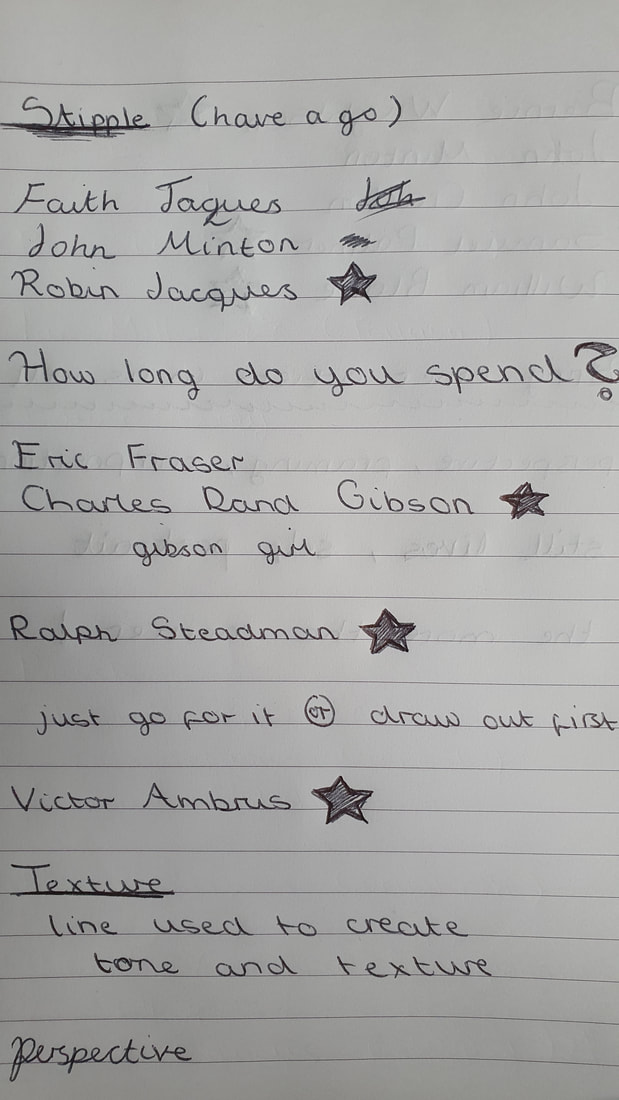 Stipple (have a go)
Faith Jaques
John Minton
Robin Jacques
How long do you spend?
Eric Fraser
Charles Dana Gibson
gibson girl
Ralph Steadman
just go for it or draw out first
Victor Ambrus
Texture
line used to create
tone and texture
perspective